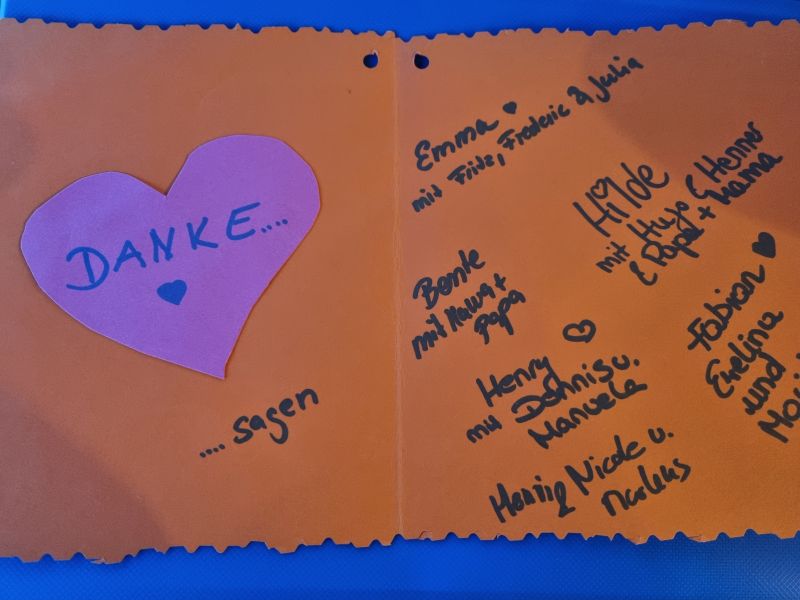 DANKE....
.... sagen
Emma
mit Fritz, Frederic & Julia
Hilde
mit Hugo & Henner
& Papa + Mama
Bente
mit Mama +
Papa
Henry
mit Dennis u.
Manuela
Fabian
Evelina
und
Henning Nicole u.
Markus